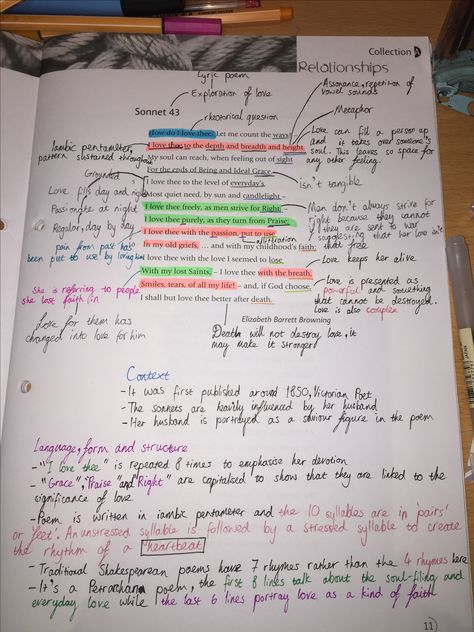 Collection A
Relationships
Lyric poem
Exploration of love
Assonance, repetition of
vowel sounds
Metaphor
Sonnet 43
rhetorical question
How do I love thee? Let me count the ways!
I love thee to the depth and breadth and height
My soul can reach, when feeling out of sight
For the ends of Being and Ideal Grace.
I love thee to the level of everyday's
Most quiet need, by sun and candlelight.
I love thee freely, as men strive for Right;
I love thee purely, as they turn from Praise;
I love thee with the passion, put to use
In my old griefs, ... and with my childhood's faith;
I love thee with the love I seemed to lose
With my lost Saints, – I love thee with the breath,
Smiles, tears, of all my life! – and, if God choose,
I shall but love thee better after death.
Elizabeth Barrett Browning
Iambic pentameter,
pattern sustained throughout
Grounded
Love fills day and night
Passionate at night
Regular, day by day
pain from past has
been put to use by loving him
She is referring to people
she lost faith in
Love for them has
changed into love for him
Love can fill a person up
and it takes over someone's
soul. This leaves no space for
any other feeling.
isn't tangible
Men don't always strive for
right because they cannot
if they are sent to war
suggesting that her love isn't
that free
Love keeps her alive
Love is presented as
powerful and something
that cannot be destroyed.
Love is also complex
Death will not destroy love, it
may make it stronger
Context
- It was first published around 1850, Victorian Poet
- The sonnets are heavily influenced by her husband
- Her husband is portrayed as a saviour figure in the poem
Language, form and structure
- "I love thee" is repeated 8 times to emphasise her devotion
- "Grace", "Praise" and "Right" are capitalised to show that they are linked to the
significance of love
- Poem is written in iambic pentameter and the 10 syllables are in 'pairs'
or 'feet'. An unstressed syllable is followed by a stressed syllable to create
the rhythm of a heartbeat
- Traditional Shakespearean poems have 7 rhymes rather than the 4 rhymes here
- It's a Petrarchan poem, the first 8 lines talk about the soul-filing and
everyday love while the last 6 lines portray love as a kind of faith
11